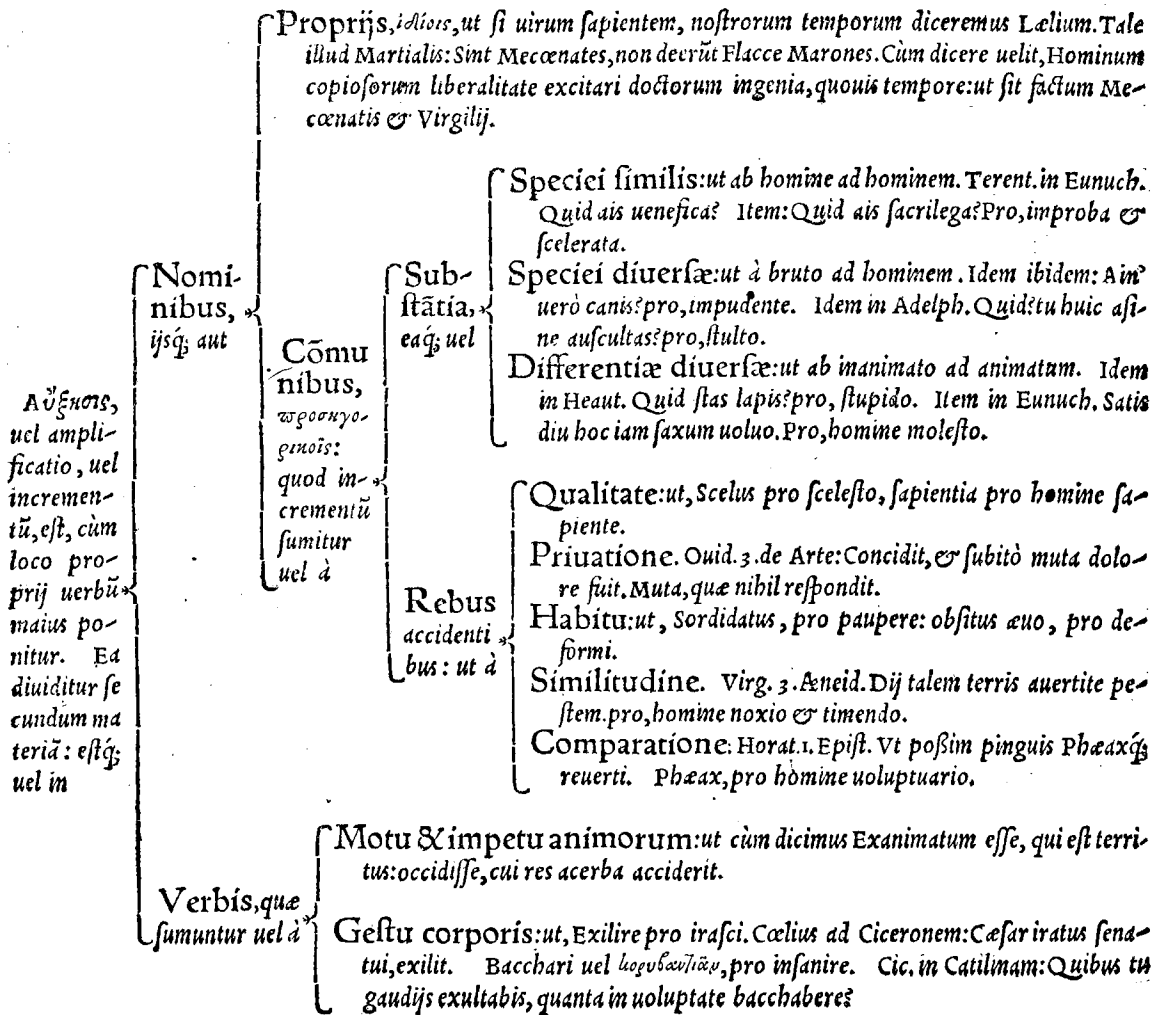 Αὔξησις,
uel ampli-
ficatio, uel
incremen-
tũ, est, cùm
loco pro-
prij uerbũ
maius po-
nitur. Ea
diuiditur se
cundum ma
teriã: estq́;
uel in
Nomi-
nibus,
ijsq́; aut
Proprijs, ἰδίοις, ut si uirum sapientem, nostrorum temporum diceremus Lælium. Tale
illud Martialis: Sint Mecœnates, non deerũt Flacce Marones. Cùm dicere uelit, Hominum
copiosorum liberalitate excitari doctorum ingenia, quouis tempore: ut sit factum Me-
cœnatis & Virgilij.
Cõmu
nibus,
προσηγο-
ρικοῖς:
quod in-
crementũ
sumitur
uel à
Sub-
stãtia,
eaq́; uel
Speciei similis: ut ab homine ad hominem. Terent. in Eunuch.
Quid ais uenefica? Item: Quid ais sacrilega? Pro, improba &
scelerata.
Speciei diuersæ: ut à bruto ad hominem. Idem ibidem: Ain'
uerò canis? pro, impudente. Idem in Adelph. Quid? tu huic asi-
ne auscultas? pro, stulto.
Differentiæ diuersæ: ut ab inanimato ad animatum. Idem
in Heaut. Quid stas lapis? pro, stupido. Item in Eunuch. Satis
diu hoc iam saxum uoluo. Pro, homine molesto.
Rebus
accidenti
bus: ut à
Qualitate: ut, Scelus pro scelesto, sapientia pro homine sa-
piente.
Priuatione. Ouid. 3. de Arte: Concidit, & subitò muta dolo-
re fuit. Muta, quæ nihil respondit.
Habitu: ut, Sordidatus, pro paupere: obsitus æuo, pro de-
formi.
Similitudine. Virg. 3. Æneid. Dij talem terris auertite pe-
stem. pro, homine noxio & timendo.
Comparatione: Horat. 1. Epist. Vt poßim pinguis Phæaxq́;
reuerti. Phæax, pro homine uoluptuario.
Verbis, quæ
sumuntur uel à
Motu & impetu animorum: ut cùm dicimus Exanimatum esse, qui est terri-
tus: occidisse, cui res acerba acciderit.
Gestu corporis: ut, Exilire pro irasci. Cœlius ad Ciceronem: Cæsar iratus sena-
tui, exilit. Bacchari uel κορυβαντιᾶν, pro insanire. Cic. in Catilinam: Quibus tu
gaudijs exultabis, quanta in uoluptate bacchabere?